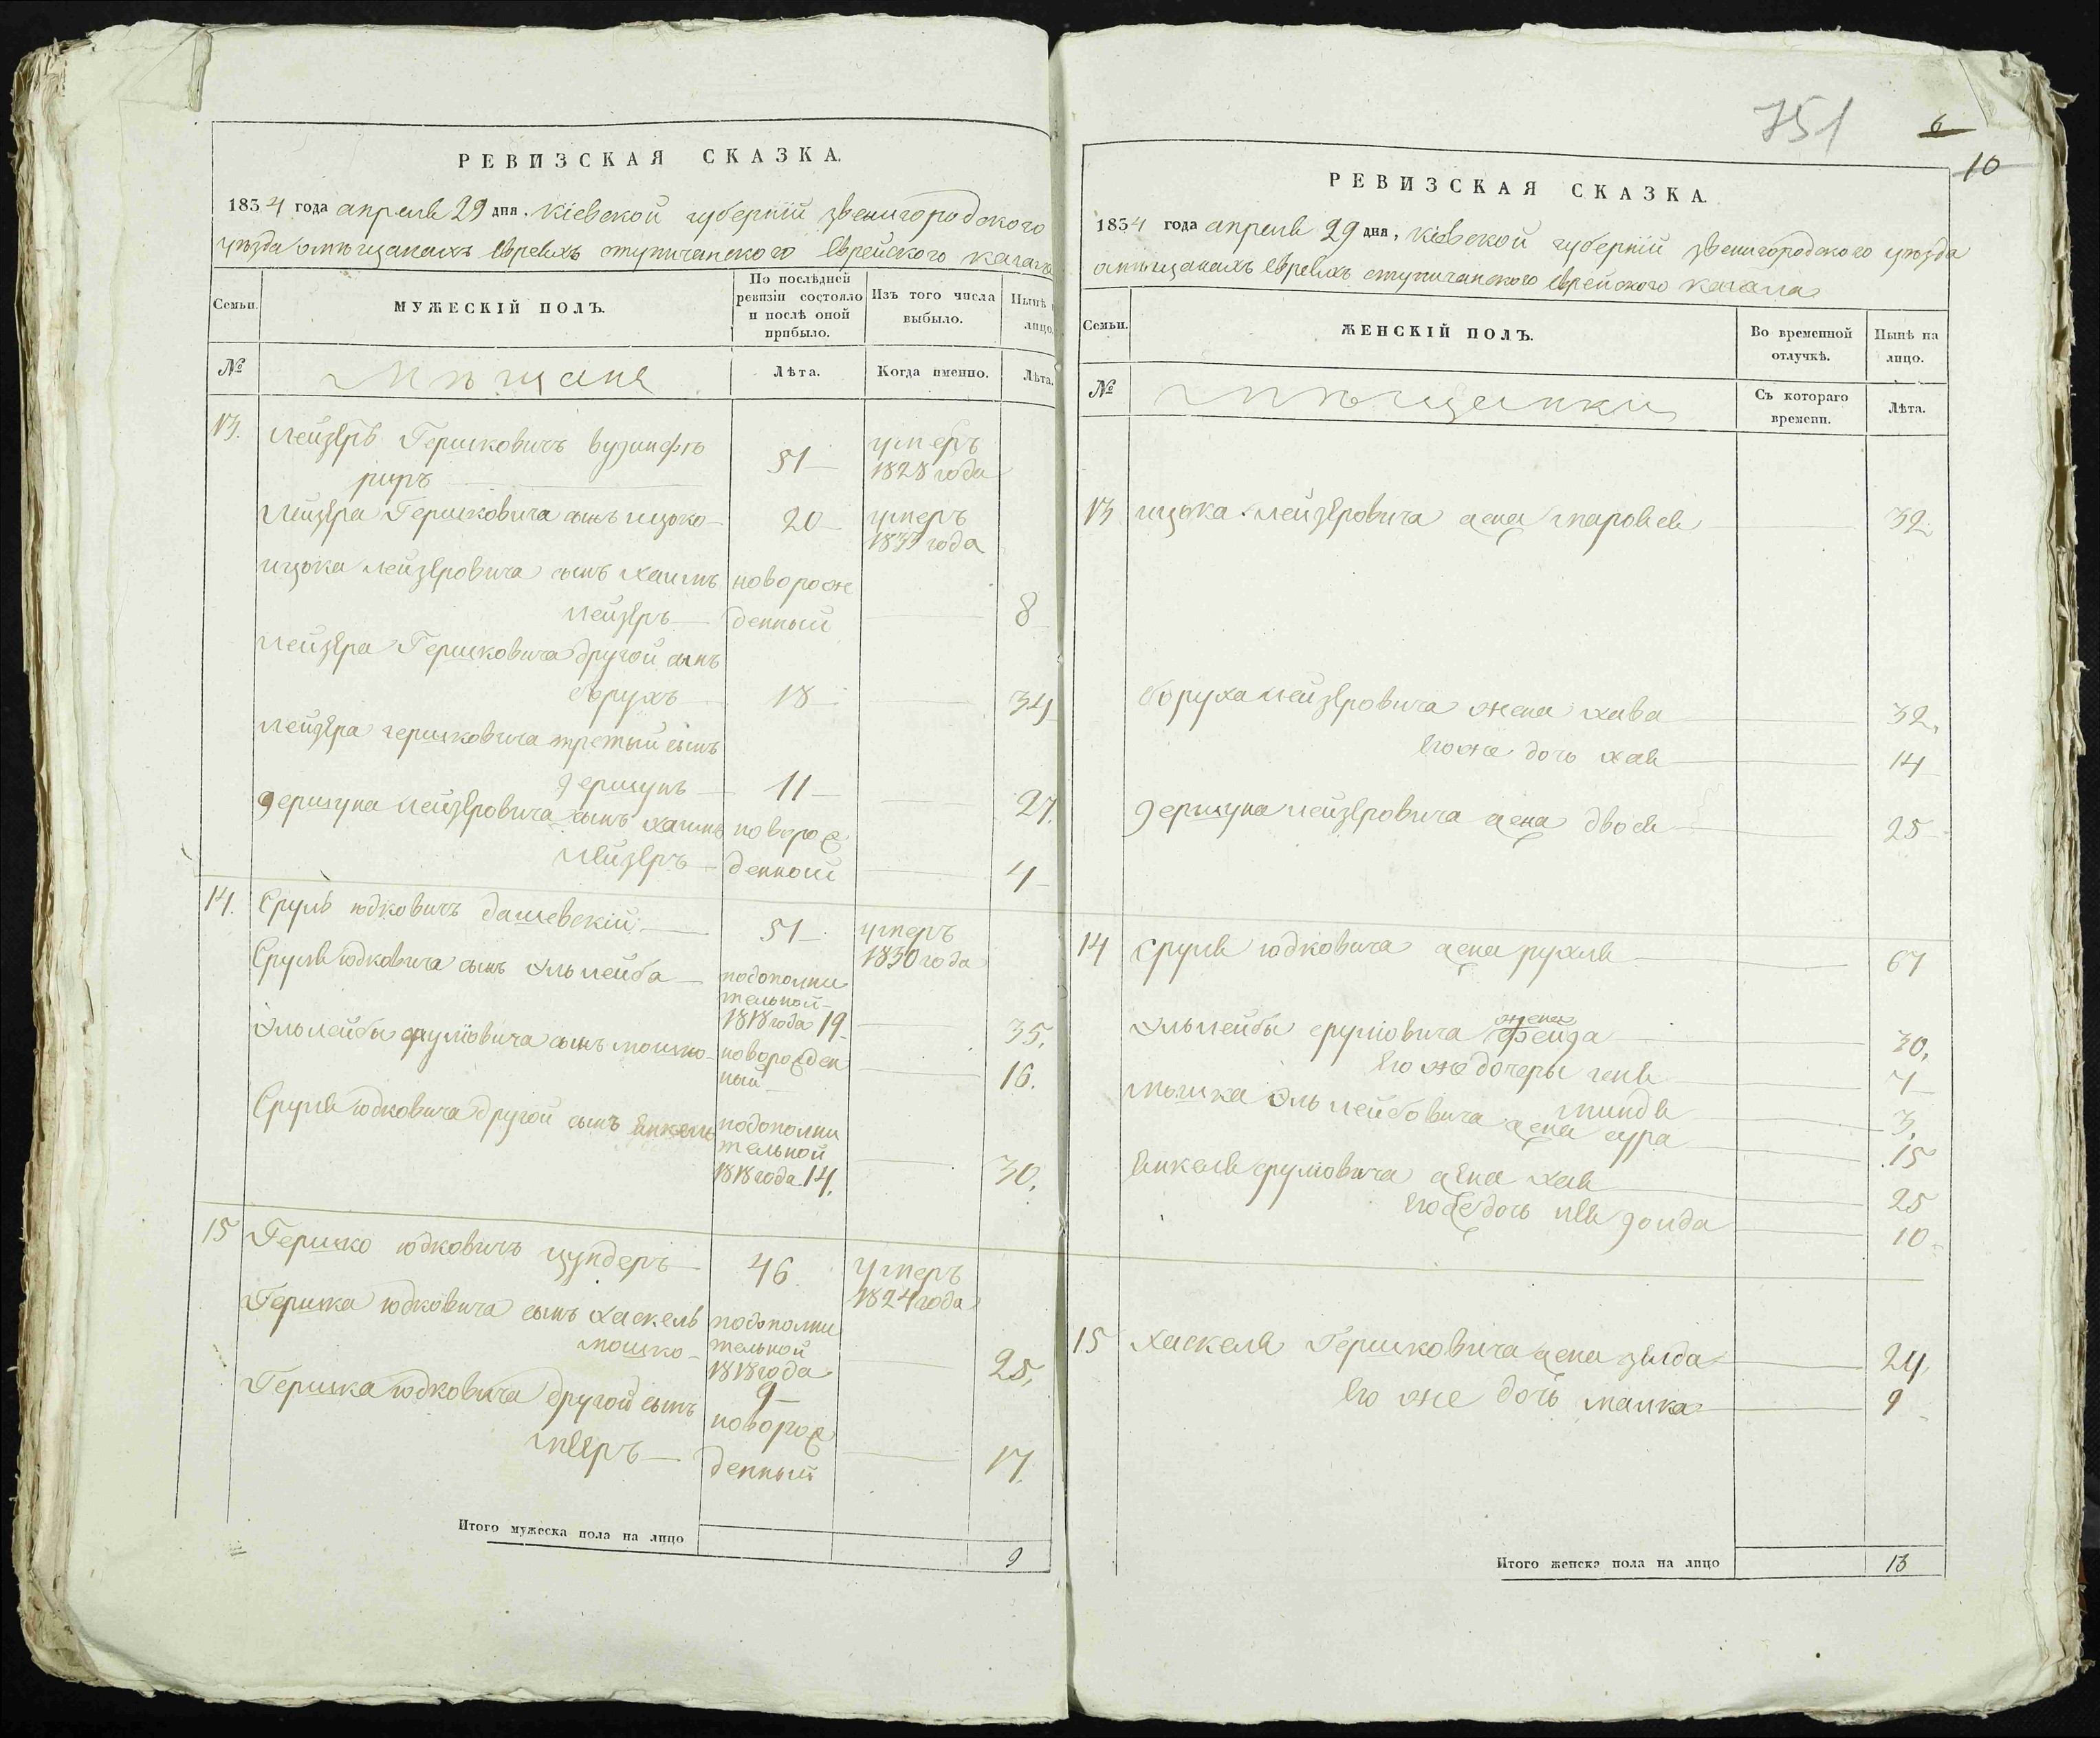 РЕВИЗСКАЯ СКАЗКА.
1834 года апреля 29 дня. Кіевской губерніи звенигородского
уѣзда омѣщанахъ Евреяхъ Еврейского кагала
Семьи.
МУЖЕСКІЙ ПОЛЪ.
По послѣдней ревизіи состояло и послѣ оной прибыло.
Изъ того числа выбыло.
Нынѣ лицо.
№
Мѣщане
Лѣта.
Когда именно.
Лѣта.
13.
Лейзеръ Гершковичъ
51
умеръ
1828 года
Лейзера Гершковича сынъ ицько
20
умеръ
года
ицька лейзеровича сынъ хаимъ
новорож
лейзеръ
денный
8
Лейзера Гершковича другой сынъ
борухъ
18
34
Лейзера гершковича третьий сынъ
гершунъ
11
27.
гершуна лейзеровича сынъ хаимъ
новорож
лейзеръ
денной
4
14.
Сруль юдковичъ дашевскій
51
умеръ
1830 года
Сруля юдковича сынъ эльлейба
подополни
тельной
1818 года 19
35.
эльлейбы сруліовича сынъ мошко
новорожден
ный
16.
Сруля юдковича другой сынъ янкель
подополни
тельной
1818 года 14.
30.
15
Гершко юдковичъ цундеръ
46
умеръ
1824 года
Гершка юдковича сынъ хаскель
мошко
подополни
тельной
1818 года
9
25.
Гершка юдковича другой сынъ
мееръ
новорож
денный
17.
Итого мужеска пола на лицо
9
751
6
10
РЕВИЗСКАЯ СКАЗКА.
1834 года апреля 29 дня, кіевской губерніи звенигородского уѣзда
омѣщанахъ Евреяхъ Еврейского кагала
Семьи.
ЖЕНСКІЙ ПОЛЪ.
Во временной отлучкѣ.
Нынѣ на лицо.
№
мѣщанки
Съ котораго времени.
Лѣта.
13
ицька лейзеровича жена
32
боруха лейзеровича жена хава
32.
Его же дочь хая
14
гершуна лейзеровича жена двося
25
14
Сруля юдковича жена рухля
67
эльлейбы сруліовича жена фейга
30.
Его же дочеры геня
7
минда
3.
мошка эльлейбовича жена сура
15
янкеля сруліовича жена хая
25
Его же дочь
10
15
Хаскеля Гершковича жена
24.
Его же дочь малка
9
Итого женска пола на лицо
13